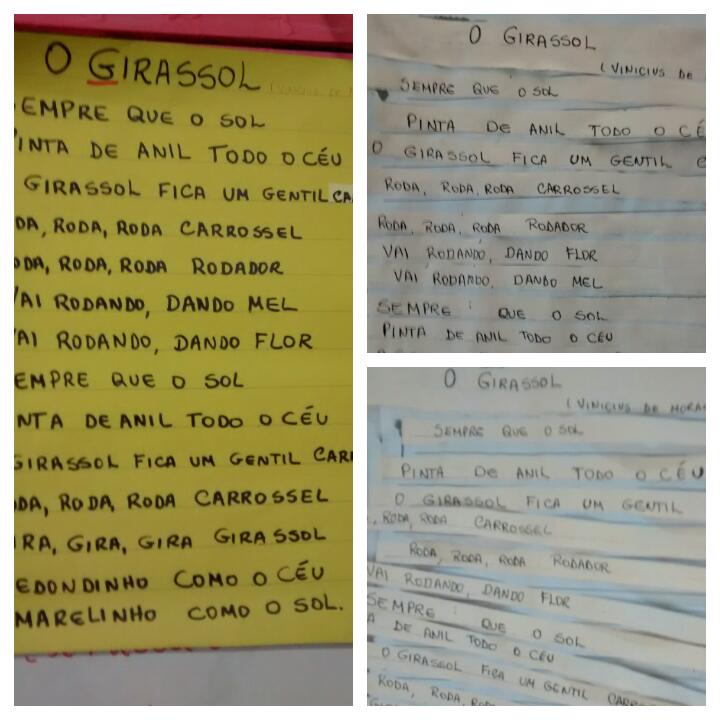 O GIRASSOL
EMPRE QUE O SOL
PINTA DE ANIL TODO O CÉU
GIRASSOL FICA UM GENTIL CA
DA, RODA, RODA CARROSSEL
ODA, RODA, RODA RODADOR
VAI RODANDO, DANDO MEL
AI RODANDO, DANDO FLOR
EMPRE QUE O SOL
NTA DE ANIL TODO O CÉU
GIRASSOL FICA UM GENTIL CARR
DA, RODA, RODA CARROSSEL
IRA, GIRA, GIRA GIRASSOL
EDONDINHO COMO O CÉU
MARELINHO COMO O SOL.
O GIRASSOL
(VINICIUS DE
SEMPRE QUE O SOL
PINTA DE ANIL TODO O CÉ
O GIRASSOL FICA UM GENTIL
RODA, RODA, RODA CARROSSEL
RODA, RODA, RODA RODADOR
VAI RODANDO, DANDO FLOR
VAI RODANDO, DANDO MEL
SEMPRE QUE O SOL
PINTA DE ANIL TODO O CÉU
O GIRASSOL
(VINICIUS DE MORA
SEMPRE QUE O SOL
PINTA DE ANIL TODO O CÉU
O GIRASSOL FICA UM GENTIL
, RODA, RODA CARROSSEL
RODA, RODA, RODA RODADOR
VAI RODANDO, DANDO FLOR
SEMPRE QUE O SOL
A DE ANIL TODO O CÉU
O GIRASSOL FICA UM GENTIL CARR
RODA, RODA, ROD